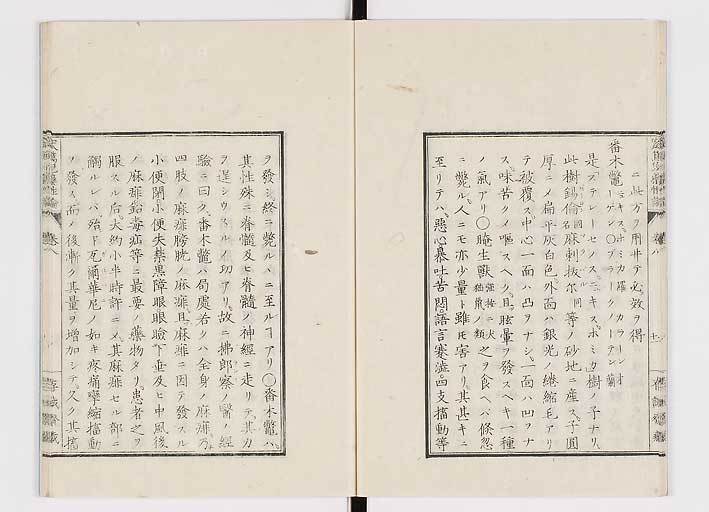 ニ此方ヲ用井テ必效ヲ得
番木鼈
是ステレーセノス、ニキスボミカ樹ノ子ナリ、
此樹錫倫麻剌抜尔等ノ砂地ニ産ス。子圓
厚ニメ扁平灰白色外面ハ銀光ノ綣縮毛アリ
テ被覆ス中心一面ハ凸ヲナシ一面ハ凹ヲナ
ス。味苦ク乄嘔スヘク且眩暈ヲ發スヘキ一種
ノ氣アリ〇醃生獸之ヲ食ヘバ倏忽
ニ斃ル。人ニモ亦少量ト雖モ害アリ其甚キニ
至リテハ、惡心暴吐苦悶語言蹇澁四支搐動等
ヲ發シ終ニ斃ルヽニ至ルヿアリ〇番木鼈ハ
其性殊ニ脊髓及ヒ脊髓ノ神經ニ走リテ其力
ヲ逞シウスルノ功アリ。故ニ拂郎察ノ醫ノ經
驗ニ曰ク番木鼈ハ局處若クハ全身ノ麻痺乃
四肢ノ麻痺膀胱ノ麻痺且麻痺ニ因テ發スル
小便閉小便失禁黑障眼眼瞼下垂及ヒ中風後
ノ麻痺鉛毒疝等ニ最要ノ藥物タリ。患者之ヲ
服スル后大約小半時許ニメ其麻痺セル部ニ
觸ルレバ殆ド瓦爾華尼ノ如キ疼痛攣縮搐動
ヲ發ス而ノ後漸ク其量ヲ增加シテ久ク其搐